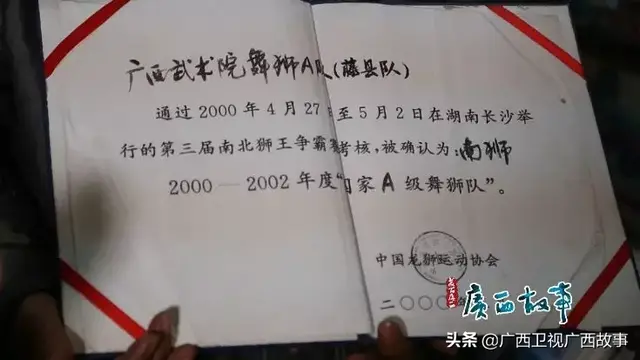 广西武术院舞狮A队(藤县队)
通过2000年4月27至5月2日在湖南长沙举
行的第三届南北狮王争霸考核,被确认为:南狮
2000—2002年度“家A级舞狮队”。
中国龙狮运动协会
二〇〇〇
广西故事
头条 @广西卫视广西故事